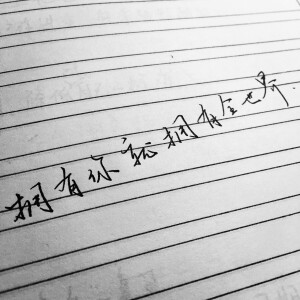 拥有你就拥有全世界.